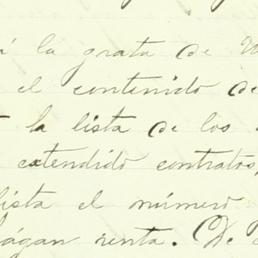 á la grata de U
el contenido de
la lista de los
extendido contratos,
lista el número
págan renta. De